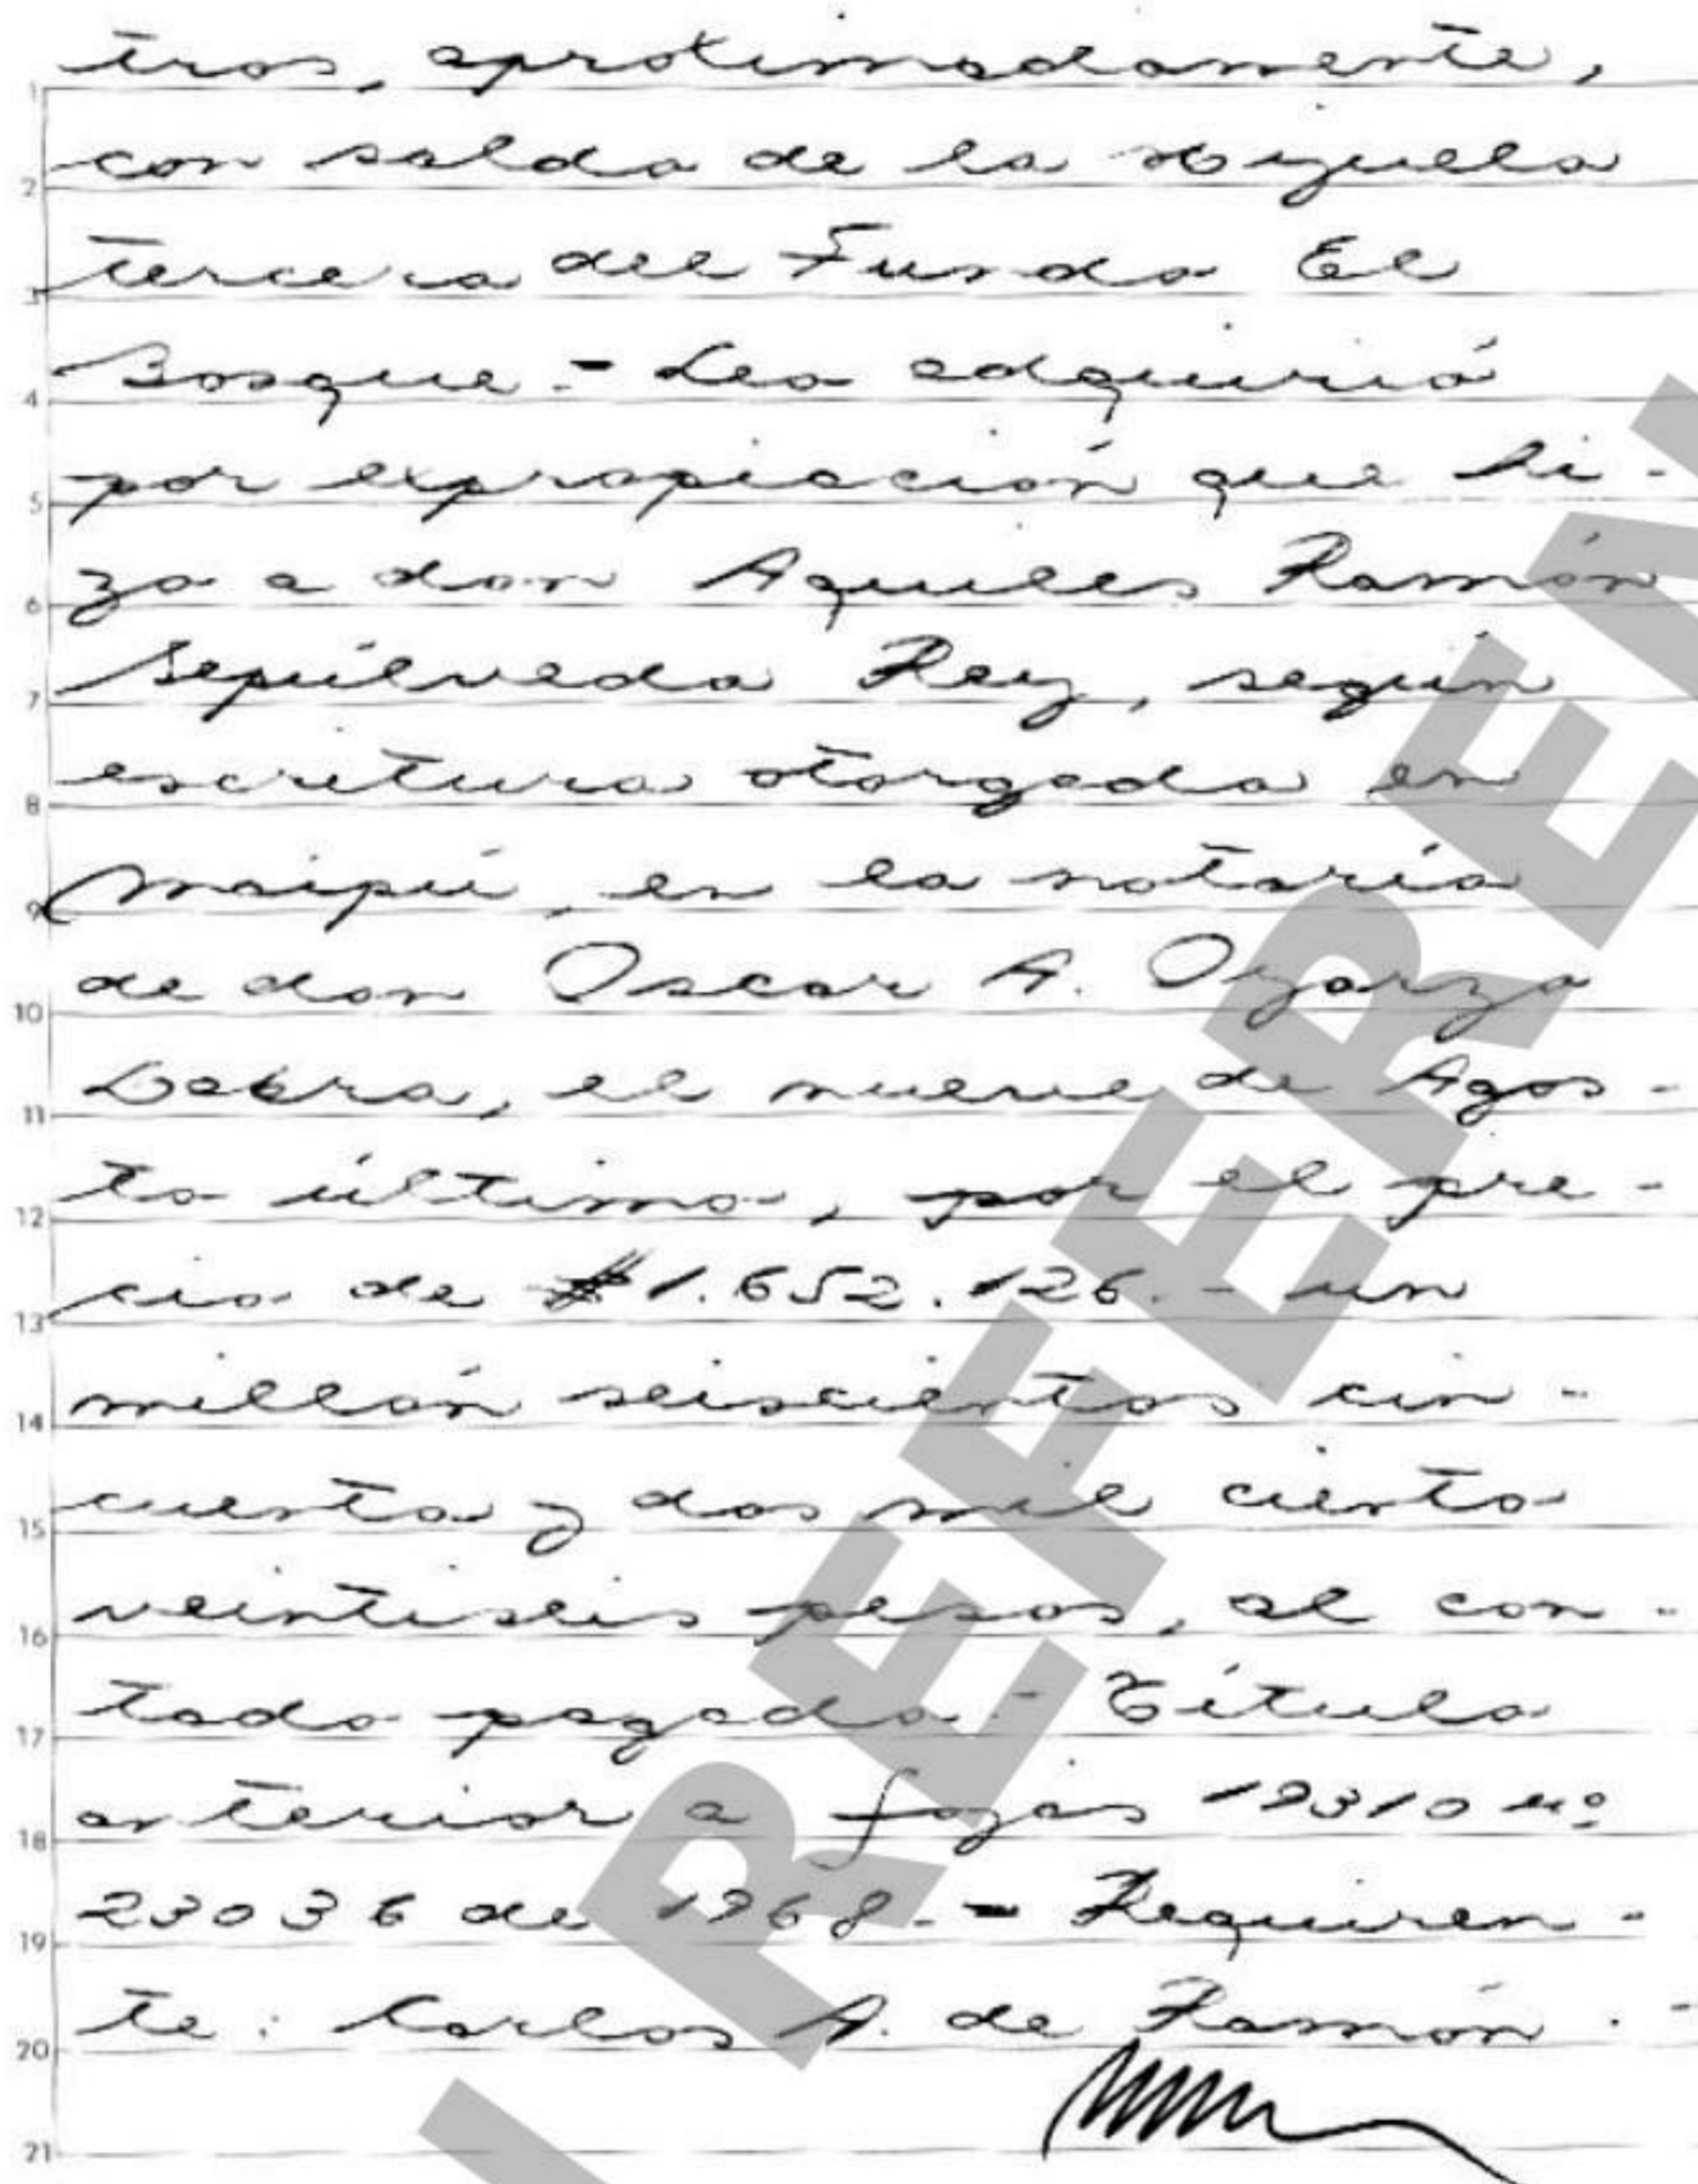 tros, aproximadamente,
1
con saldo de la Hijuela
2
tercera del Fundo El
3
Bosque.- Los adquirió
4
por expropiación que hi-
5
zo a don Aquiles Ramón
6
Sepúlveda Rey, según
7
escritura otorgada en
8
Maipú, en la notaría
9
de don Oscar A. Oyarzo
10
Labra, el nueve de Agos-
11
to último, por el pre-
12
cio de $1.652.126.- un
13
millón seiscientos cin-
14
cuenta y dos mil ciento
15
veintiseis pesos, al con-
16
tado pagado.- Título
17
anterior a fojas 19310 nº
18
23036 de 1968.- Requiren-
19
te: Carlos A. de Ramón.-
20
21